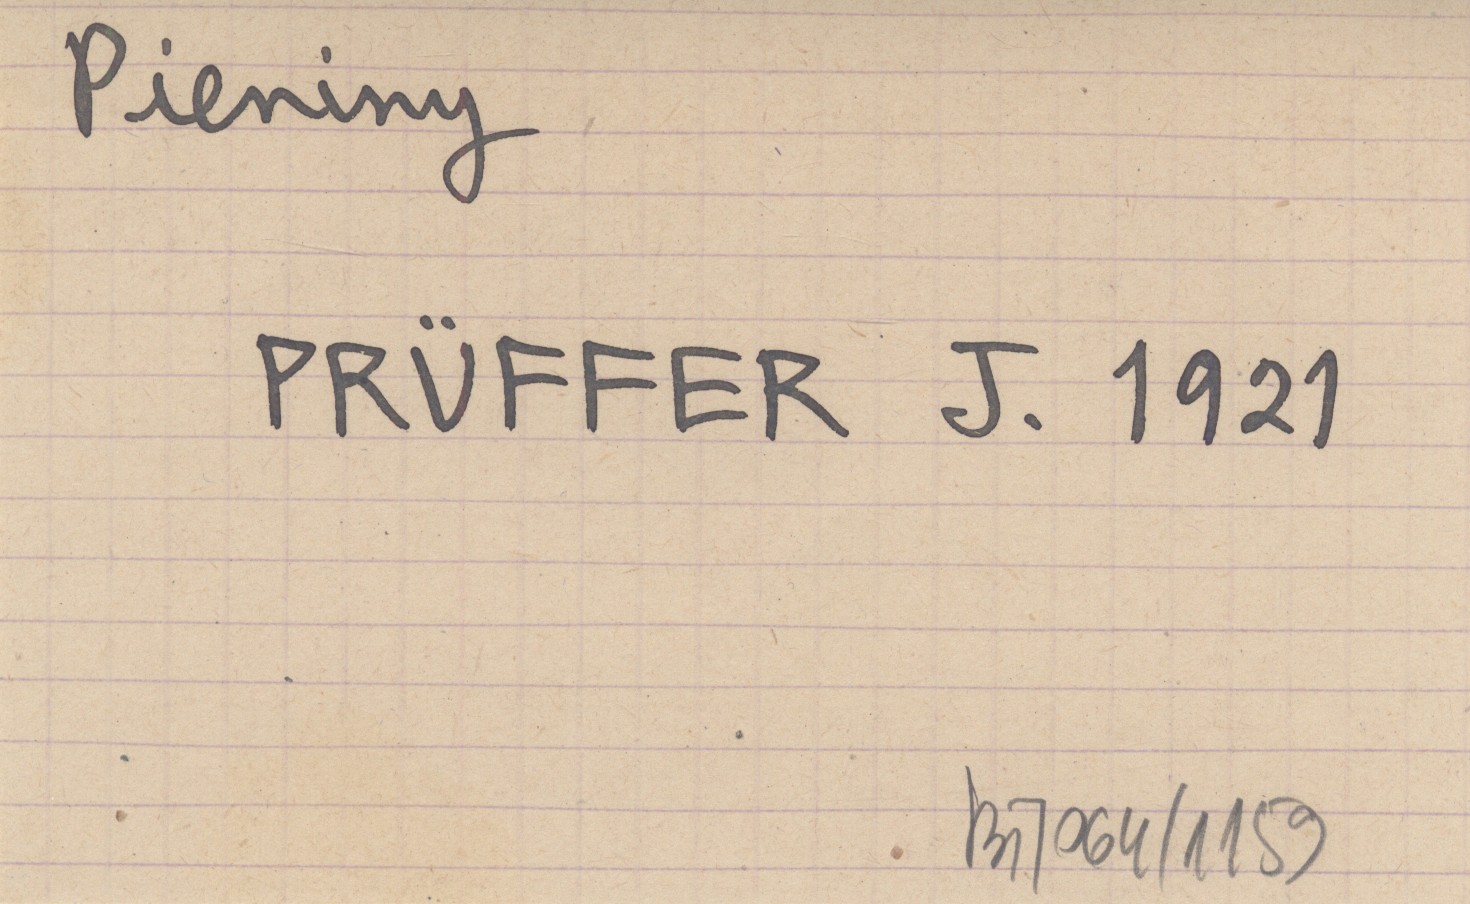 Pieniny
PRÜFFER J. 1921
/1159